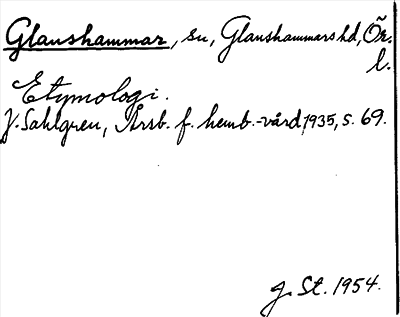 Glanshammar, sn, Glanshammars hd, Ör.
l.
Etymologi.
J. Sahlgren, Årsb. f. hemb.-vård, 1935, s. 69.
g. St. 1954.